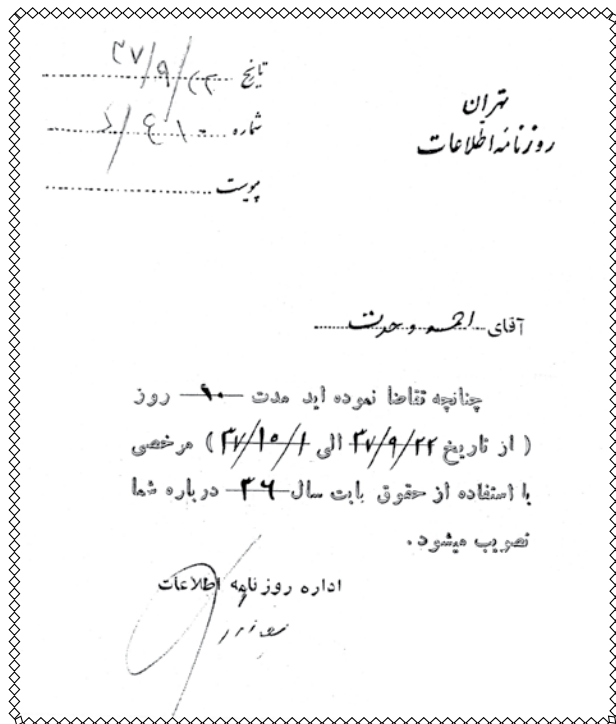 تهران
روزنامه اطلاعات
تاریخ ۳۷/۹/۲۲
شماره
پیوست
آقای احمد وحدت
چنانچه تقاضا نموده اید مدت ۱۰ روز
( از تاریخ ۳۷/۹/۲۲ الی ۳۷/۱۰/۱ ) مرخصی
با استفاده از حقوق بابت سال ۳۶ درباره شما
تصویب میشود .
اداره روزنامه اطلاعات